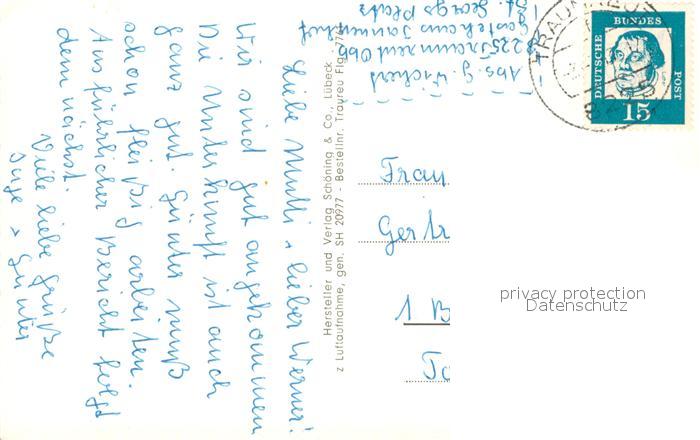 Abs. G. Wichert
225 Traunreut Obb
Gästehaus Jannerhof
St. Georgs Platz
TRAUNREUT
8225
DEUTSCHE BUNDES POST
15
Liebe Mutti + lieber Werner!
Wir sind gut angekommen
Die Unterkunft ist auch
ganz gut. Günter muß
schon fleißig arbeiten.
Ausführlicher Bericht folgt
demnächst.
Viele liebe Grüße
Inge + Günter
Hersteller und Verlag Schöning & Co., Lübeck
z Luftaufnahme, gen. SH 20977 - Bestellnr. Traureu Flg.
Frau
Gertr
1 B
privacy protection
Datenschutz